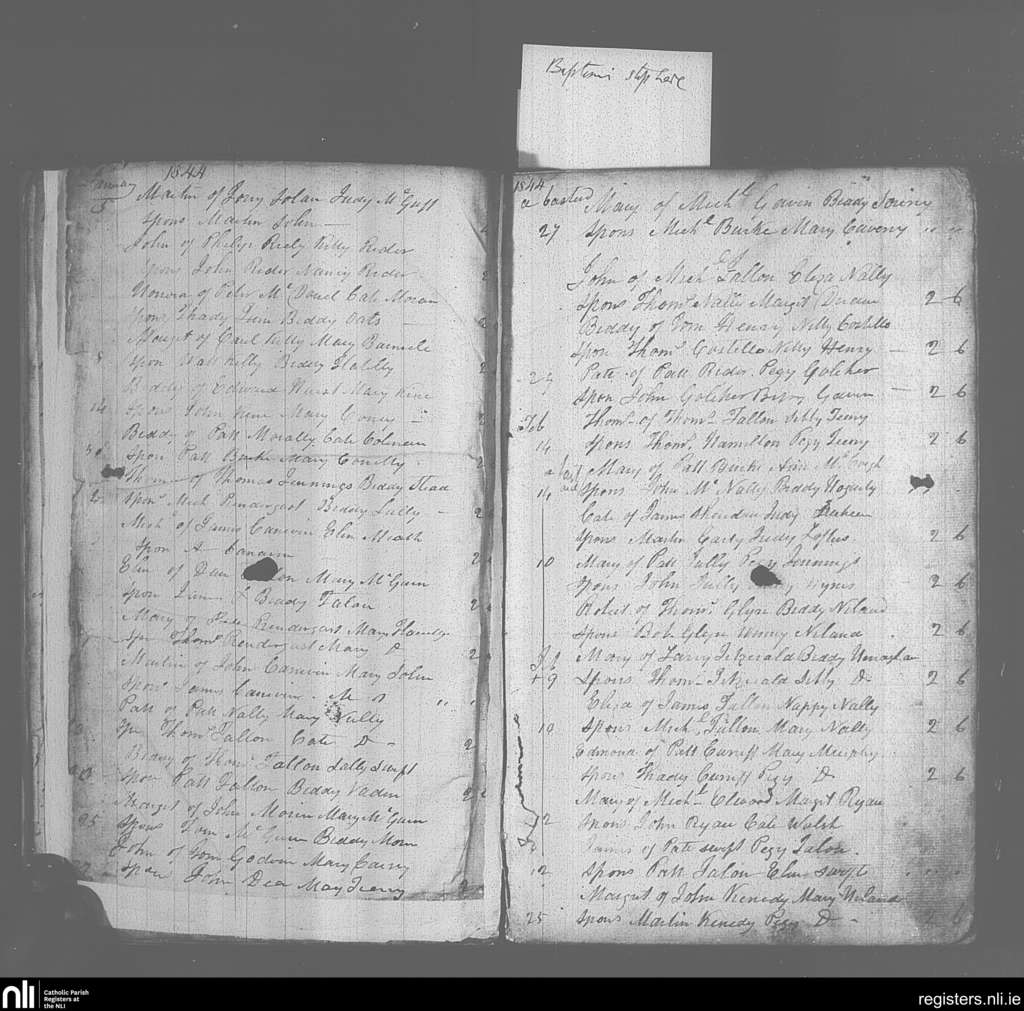 Baptisms stop here
1844
January
5 Martin of Tony Tolan Judy McGuff
Spons Martin John
John of Philip Riely Nelly Rider
Spons John Rider Nancy Rider 2
Honora of Peter McDaud Cate Moran
Spons Thady Quin Biddy Oats 2
Margt of Paul Kelly Mary
Spon Patt Kelly Biddy Flattly 2
Biddy of Edward Hurst Mary Kine
14 Spons John Kine Mary 2
Biddy of Patt Morally Cate Coleman
Spons Patt Burke Mary Conelly 2
Thom of Thomas Jennings Biddy Head
2 Spons Mich Prendergast Biddy Lally 2
Mich of James Canavin Elin Meath
Spon A Canavin 2
Elin of Dan Mary McGuin
Spon Biddy Falon 2
Mary of Prendergast Mary Flannelly
Spn Thoms Prendergast Mary Do 2
Martin of John Canavin Mary John
Spons James Canavin M
Patt of Patt Nally Mary Nally
Spn Thoms Fallon Cate Do 2
Biddy of Thoms Fallon Sally Swift
Spon Patt Fallon Biddy Vadin 2
Margit of John Morin Mary McGuin
25 Spons Tom McGuin Biddy Morin
John of Tom Godvin Mary Cavey
Spon John Dea Mary Teeny 2
1844
a bastard Mary of Michl Gavin Biddy
27 Spons Michl Burke Mary Caveny
John of Michl Fallon Eliza Nally
Spons Thoms Nally Margit 2 6
Biddy of Tom Henry Nelly Costello
Spon Thoms Costello Nelly Henry 2 6
27 Patt of Patt Rider Pegy Golcher
Spon John Golcher Biddy Gavin 2 6
Feb Thoms of Thoms Fallon Sibby Teeny
14 Spons Thoms Hamilton Pegy Teeny 2 6
a bastard Mary of Patt Burke Ann McCough
14 Spons John McNally Biddy Hogerty
Cate of James Judy
Spons Martin Carty Judy Loftus 2 6
10 Mary of Patt Tully Pegy Jennings
Spons John Tully Hynes 2 6
Robert of Thoms Glyn Biddy Niland
Spons Bob Glyn Henry Niland 2 6
Mary of Larry Fitzgerald Biddy Monaghan
9 Spons Thoms Fitzgerald Sibby Do 2 6
Eliza of James Fallon Nappy Nally
10 Spons Michl Fallon Mary Nally 2 6
Edmond of Patt Curriff Mary Murphy
Spons Thady Curriff Pegy Do 2 6
Mary of Michl Elwood Margit Ryan
12 Spons John Ryan Cate Walsh
James of Patt Swift Pegy Falon
12 Spons Patt Falon Elin Swift
Margrit of John Kenedy Mary Niland
25 Spons Martin Kenedy Pegy Do 2 6
nli
Catholic Parish
Registers at
the NLI
registers.nli.ie